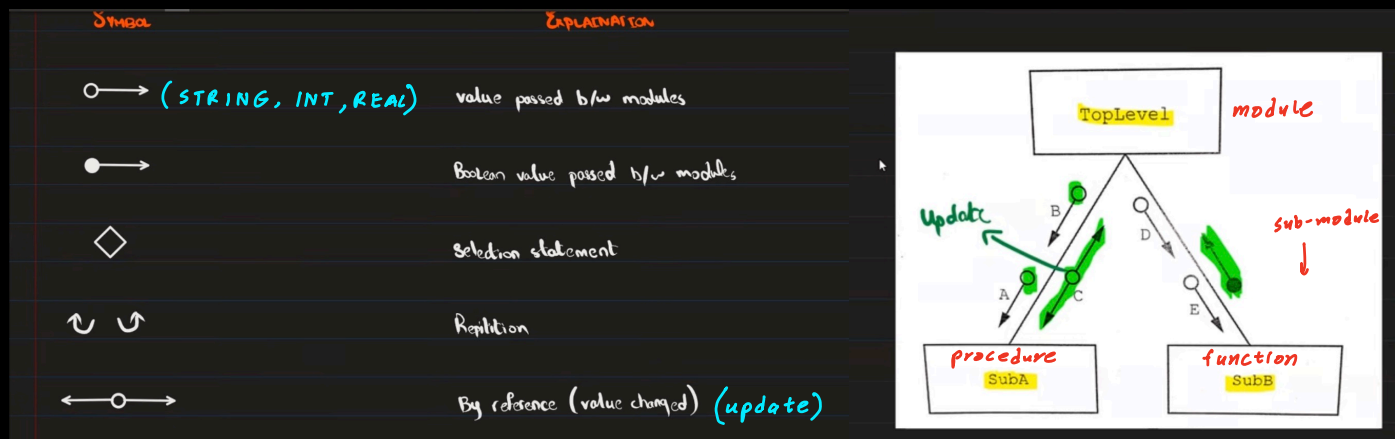 SYMBOL
EXPLAINATION
(STRING, INT, REAL)
value passed b/w modules
Boolean value passed b/w modules
Selection statement
Repitition
By reference (value changed) (update)
TopLevel
module
B
Update
D
sub-module
A
C
E
procedure
SubA
function
SubB